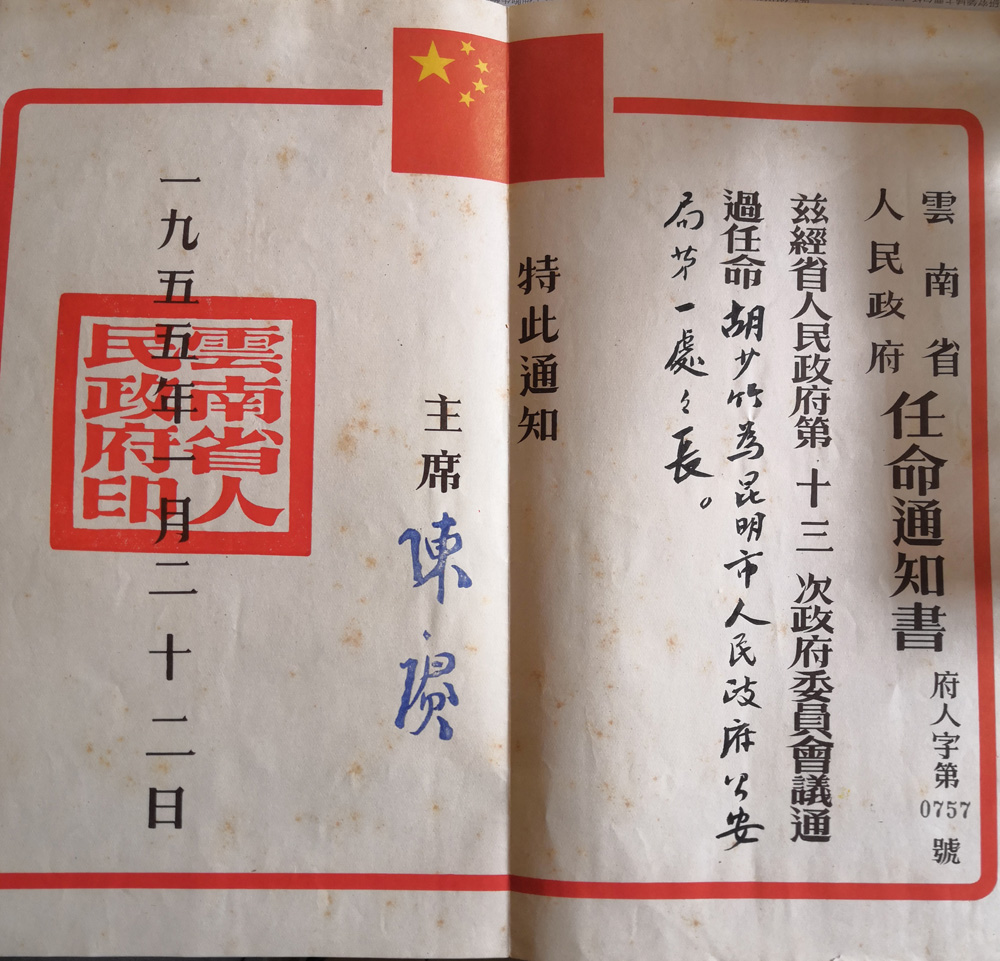 雲南省
人民政府
任命通知書
府人字第0757號
茲經省人民政府第十三次政府委員會議通
過任命胡少竹为昆明市人民政府公安
局第一處々長。
特此通知
主席
陳賡
一九五五年一月二十二日
雲南省人
民政府印